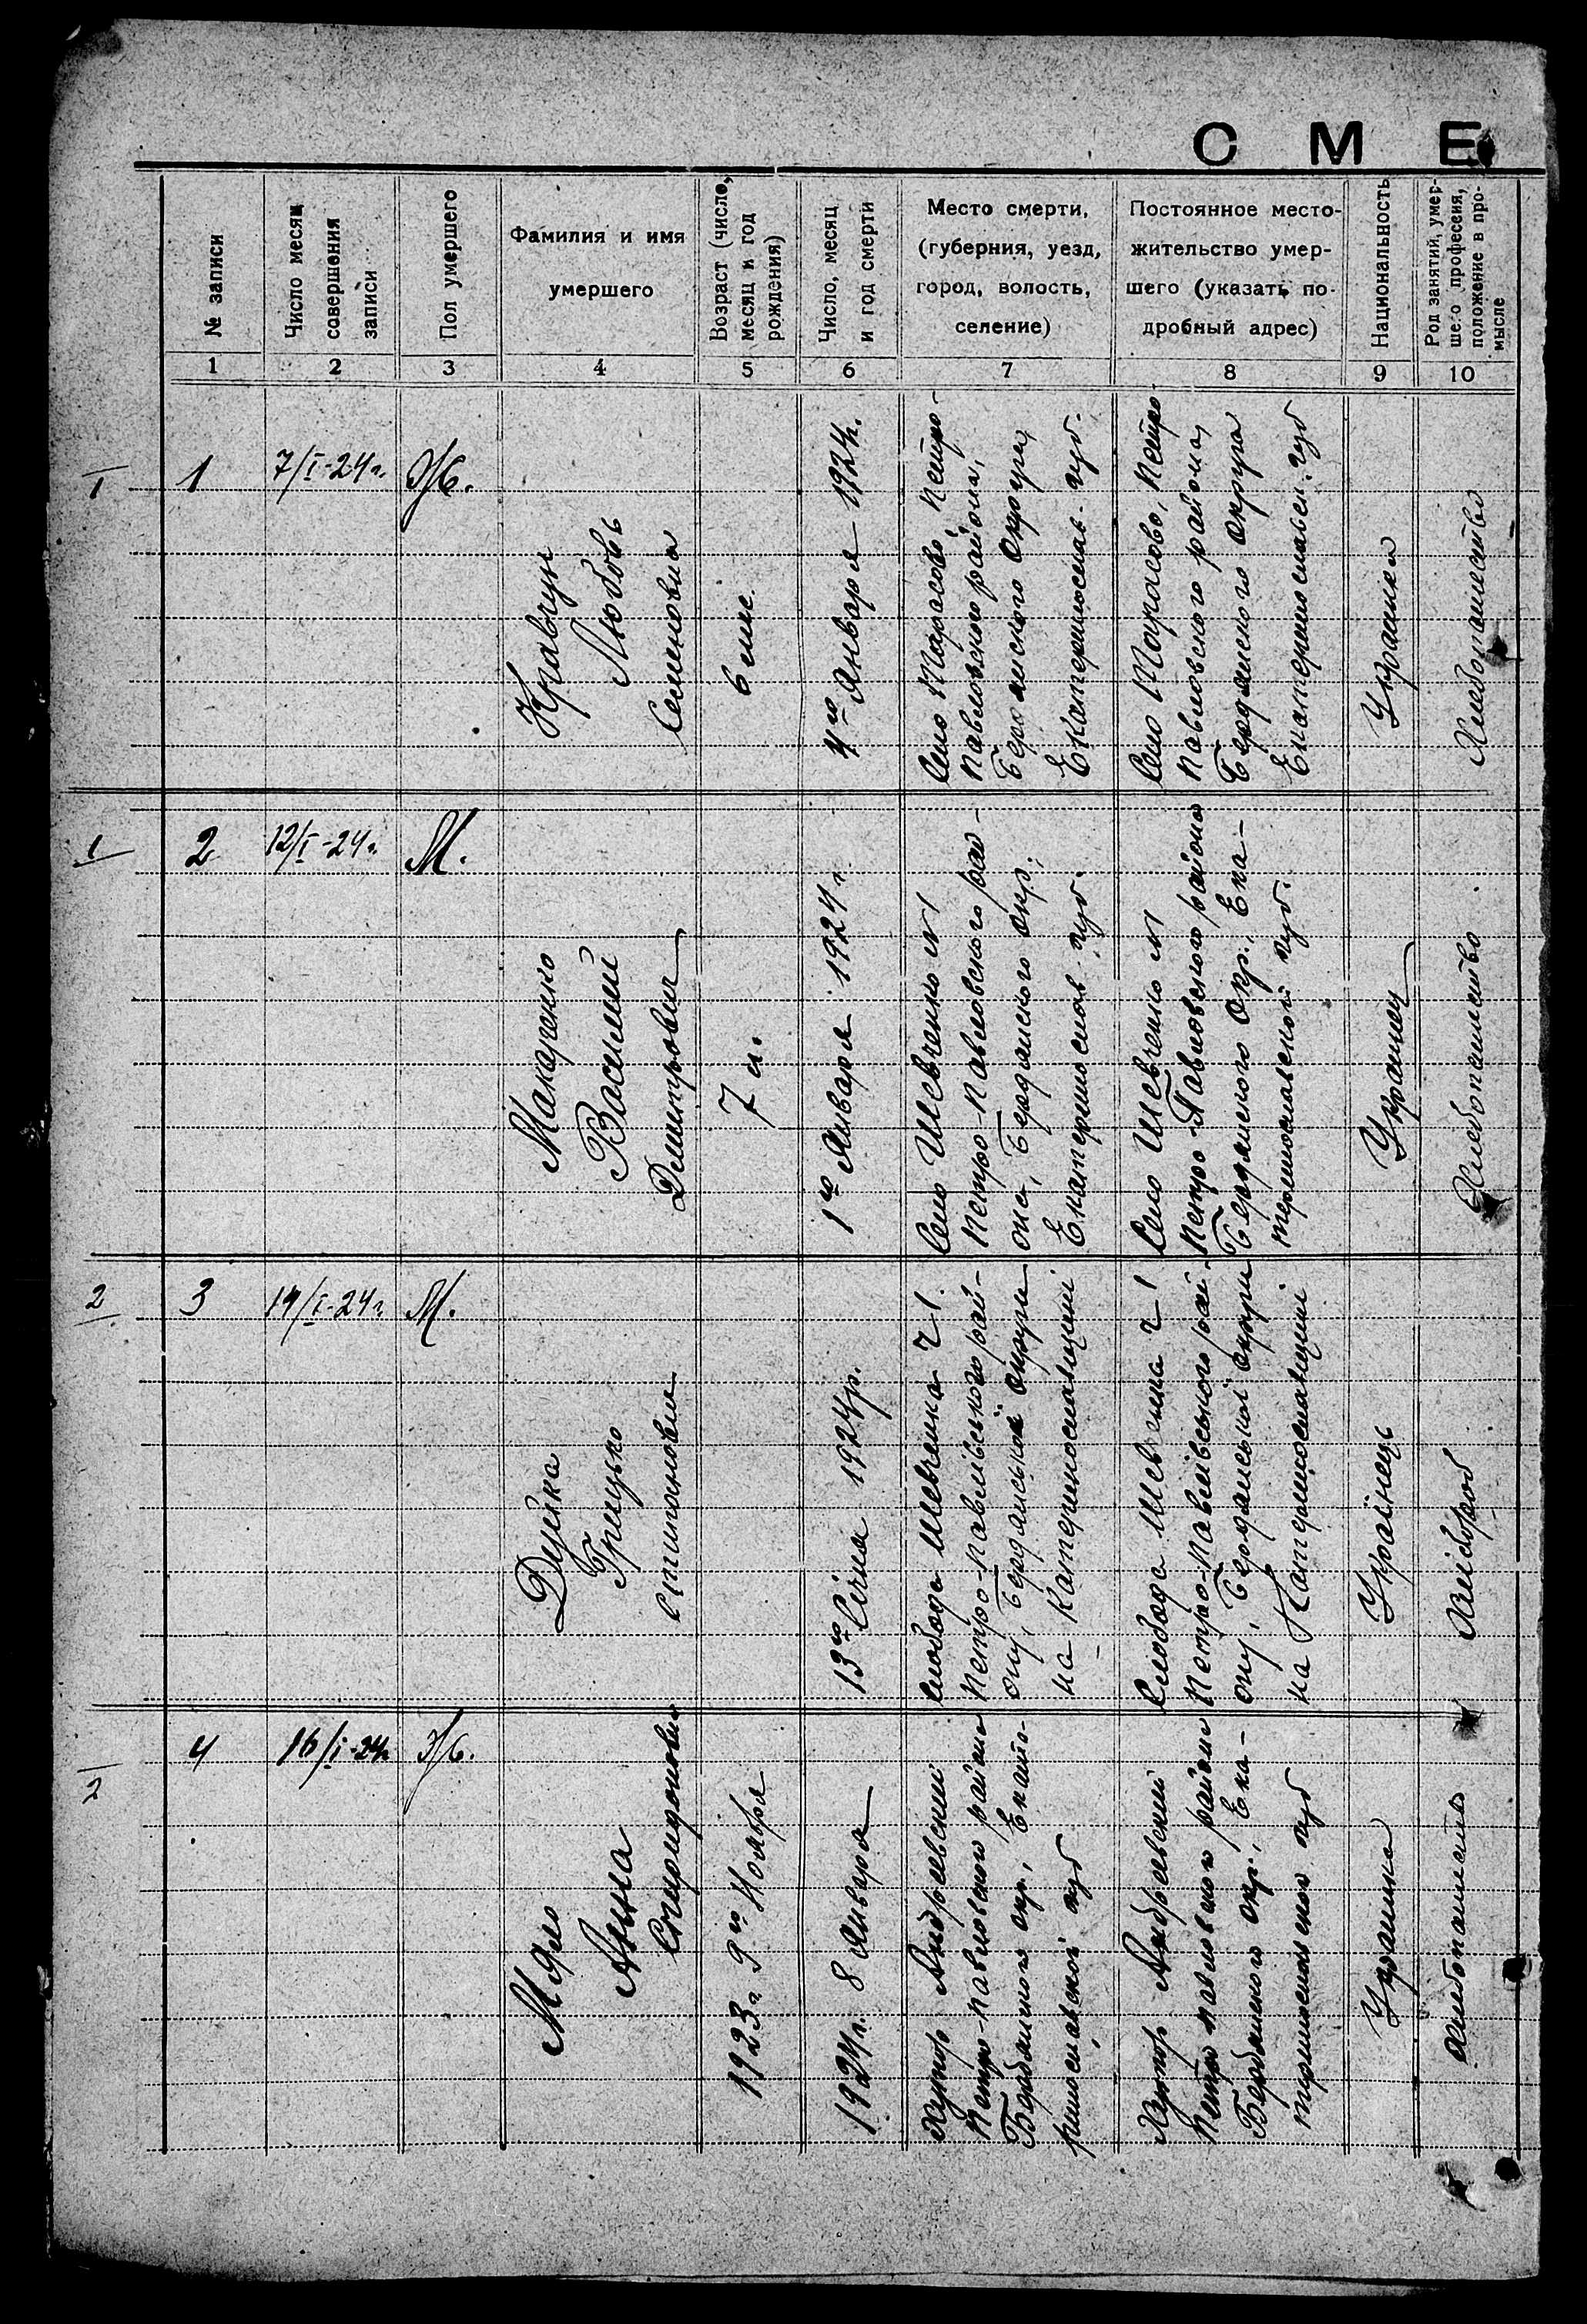 С М Е
№ записи
Число месяц
совершения
записи
Пол умершего
Фамилия и имя
умершего
Возраст (число,
месяц и год
рождения)
Число, месяц
и год смерти
Место смерти,
(губерния, уезд,
город, волость,
селение)
Постоянное место-
жительство умер-
шего (указать по-
дробный адрес)
Национальность
Род занятий, умер-
шего профессия,
положение в про-
мысле
1 2 3 4 5 6 7 8 9 10
I
1
7/I-24г.
Ж.
Кравчун
Любовь
Семеновна
6 мис.
4го Января 1924г.
Село Тарасово, Петро-
павловского района,
Бердянского Округа,
Екатеринослав. губ.
Село Тарасово, Петро-
павловского района,
Бердянского Округа
Екатеринославск. губ
Украинка
Хлебопашество
1
2
12/I-24г.
М.
Макаренко
Василий
Дмитрович
7 л.
1го Января 1924г.
Село Шевченко №1
Петро-павловского рай-
она, Бердянского окр.,
Екатеринослав. губ.
Село Шевченко №1
Петро-Павловского района
Бердянского Окр., Ека-
теринославской губ.
Украинец
Хлебопашество
2
3
14/I-24г.
М.
Дудка
Грицько
13го Січня 1924р.
Слобода Шевченка Ч1.
Петро-павлівського рай-
ону, Бердянської округи
на Катеринославщині
Слобода Шевченка Ч1
Петро-павлівського рай-
ону, Бердянської округи
на Катеринославщині
Українець
Хлібороб
2
4
16/I-24г.
Ж.
Мяло
Анна
Спиридоновна
1923г. 9го Ноября
1924г. 8 Января
Хутор Андреевский
Петро-павловского района
Бердянского окр., Екате-
ринославской губ
Хутор Андреевский
Петро-павловского района
Бердянского окр., Ека-
теринославской губ
Украинка
Хлебопашество